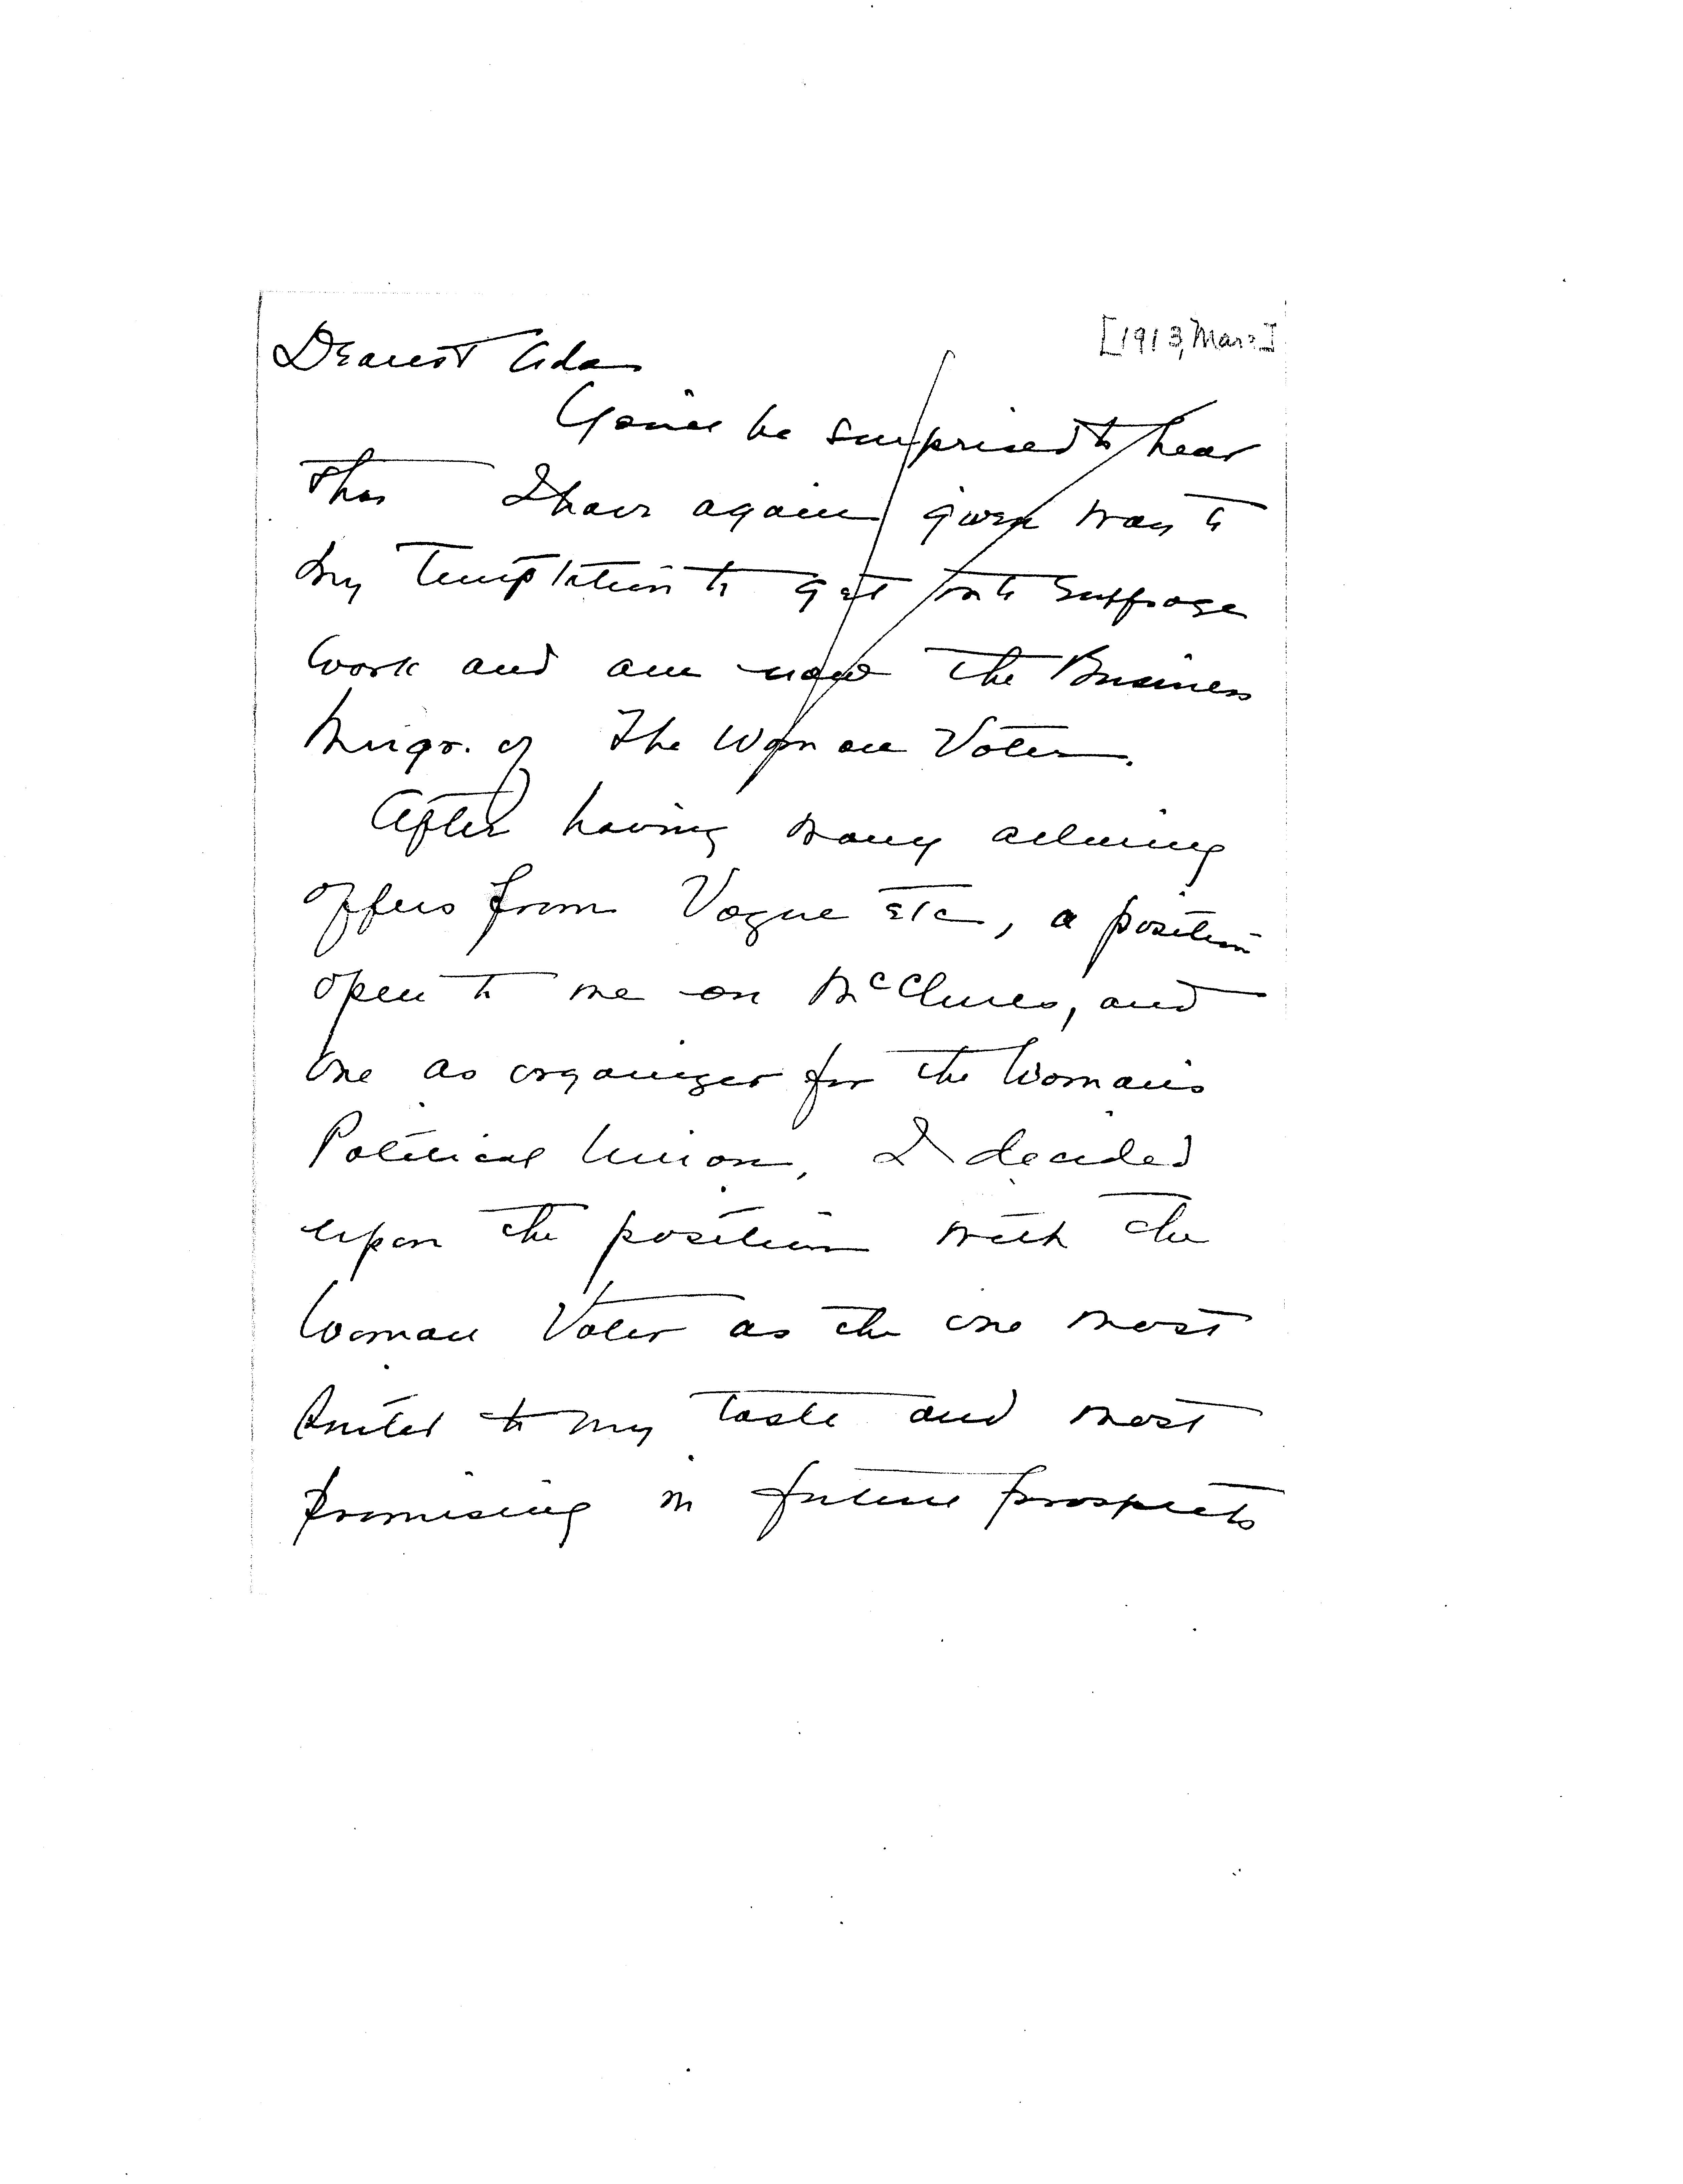 [1913, Mar?]
Dearest Ada
You'll be surprised to hear
that I have again given way to
my temptation to get into suffrage
work and am now the Business
Mngr. of The Woman Voter.
After having many alluring
offers from Vogue etc, a position
open to me on McClures, and
one as organizer for the Woman's
Political Union, I decided
upon the position with the
Woman Voter as the one most
suited to my taste and most
promising in future prospects